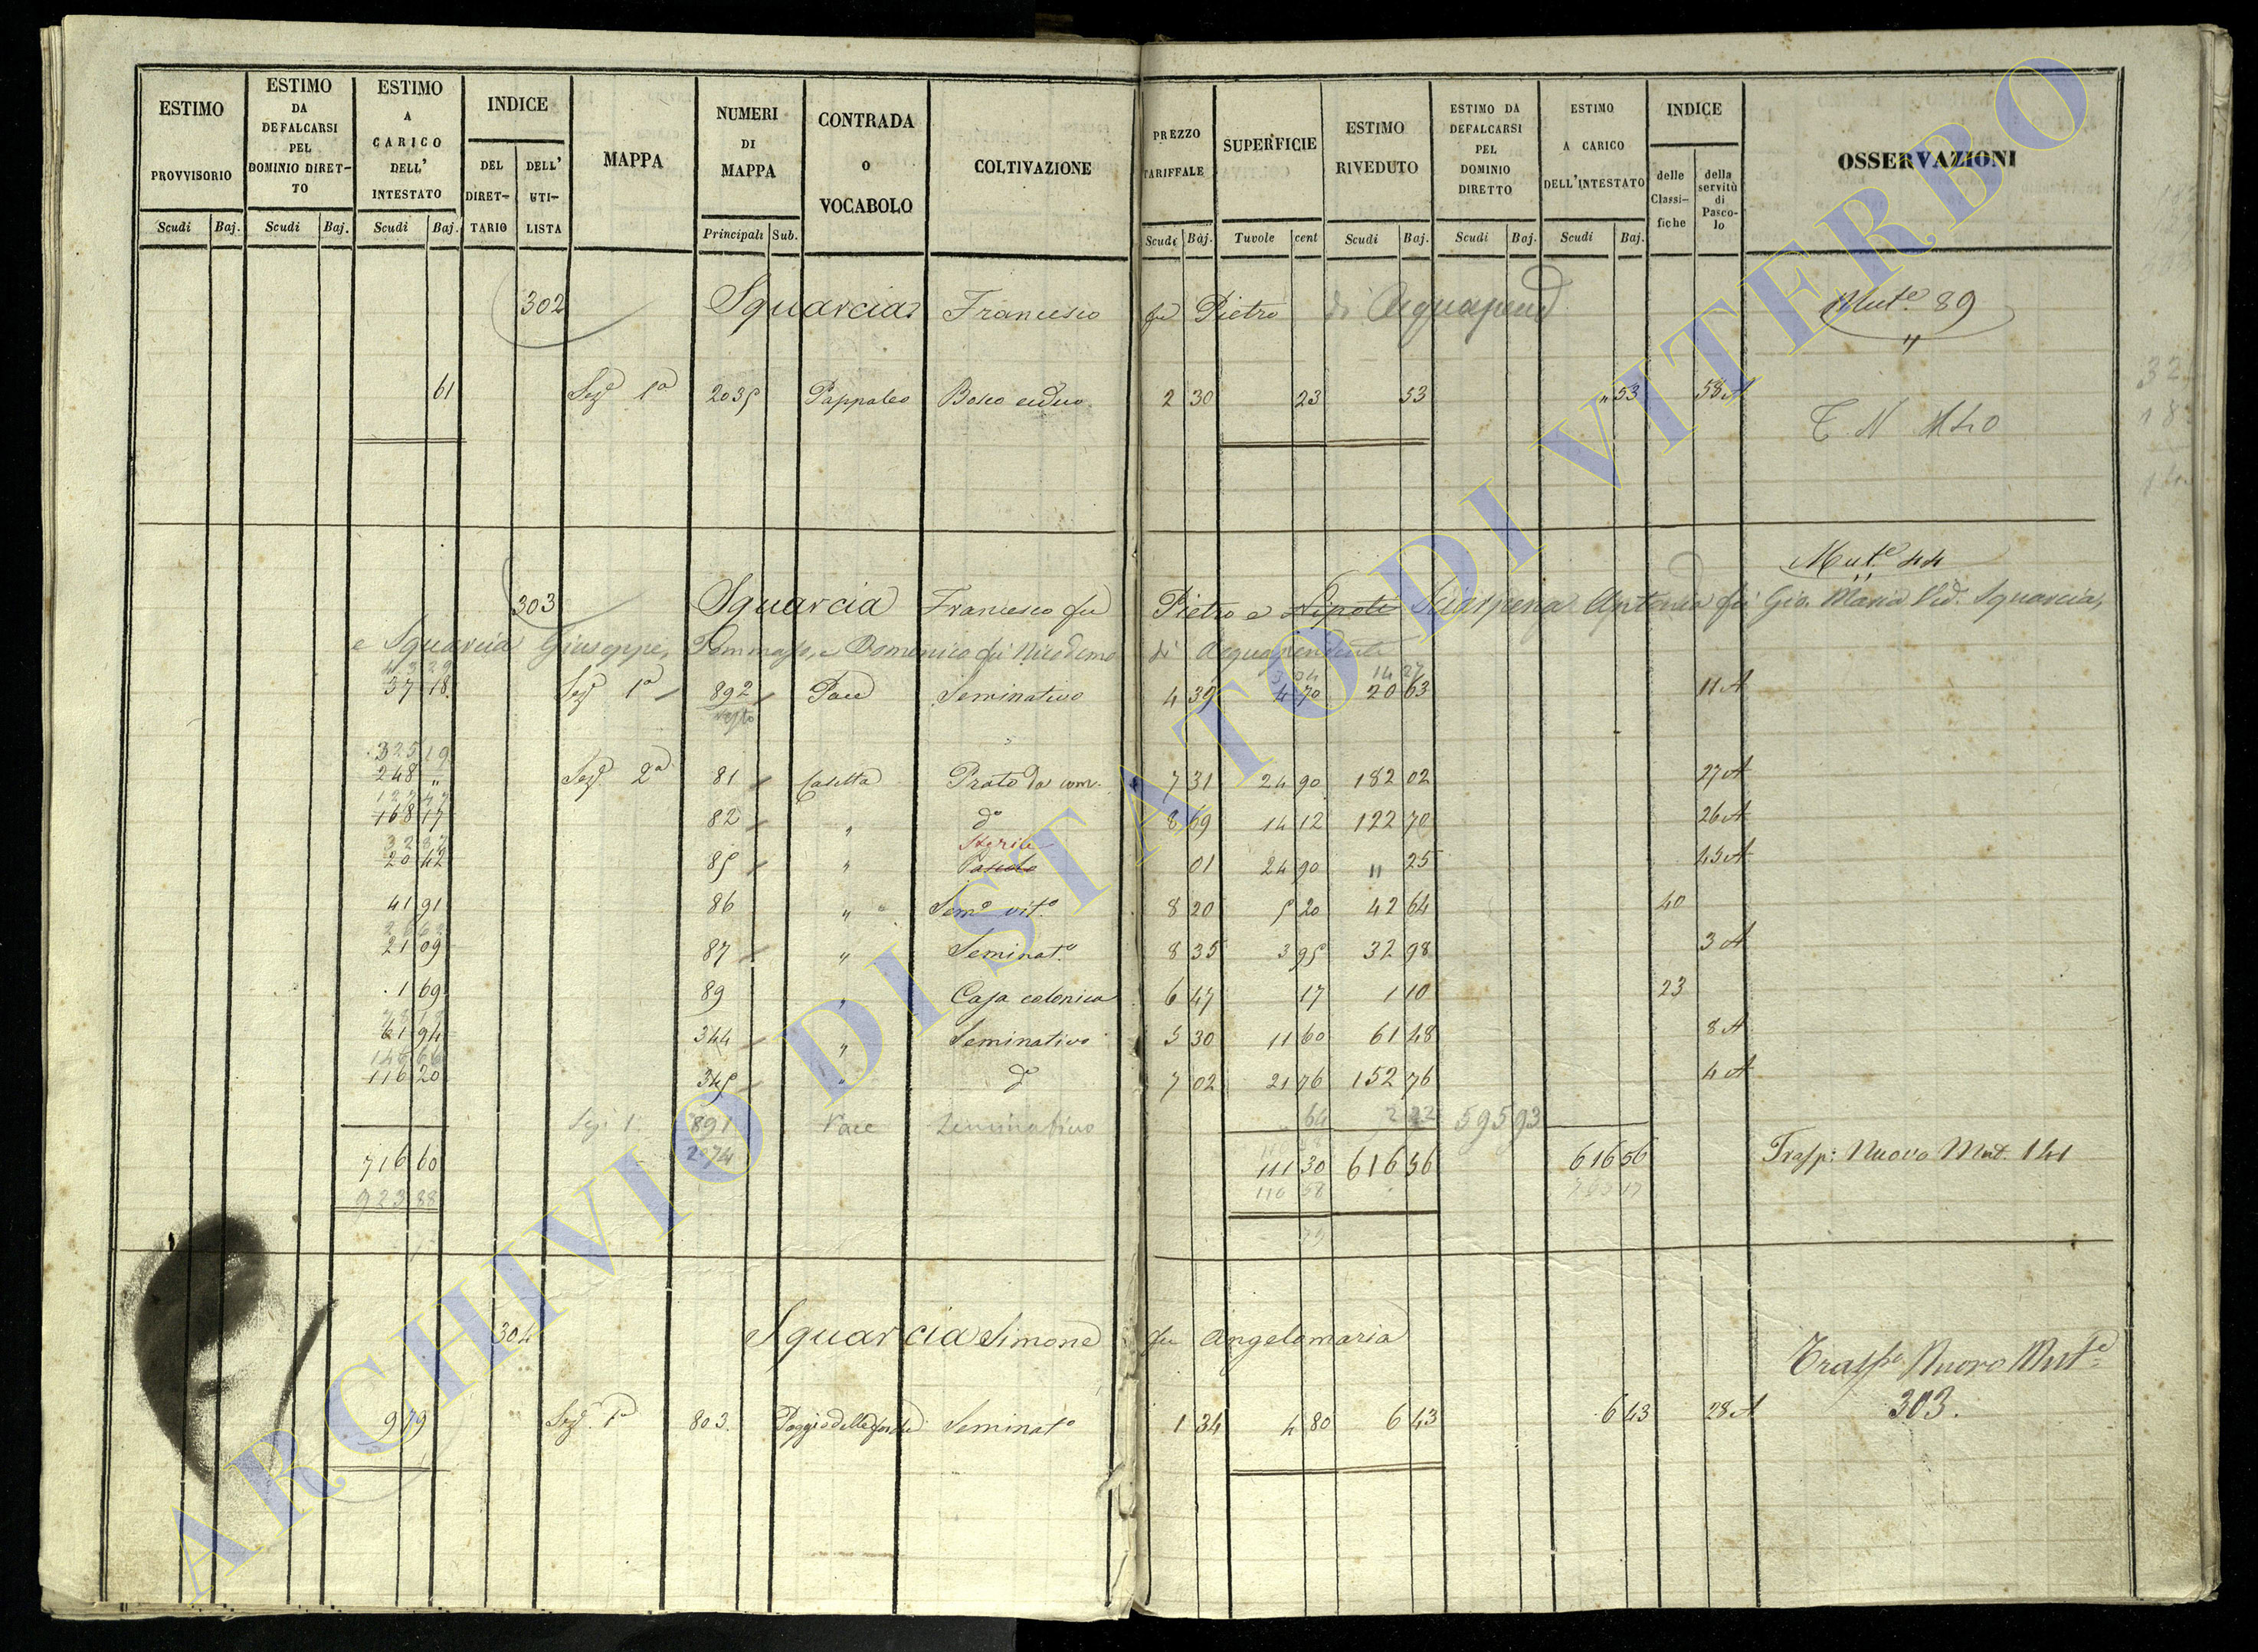 ESTIMO PROVVISORIO | ESTIMO DA DEFALCARSI PEL DOMINIO DIRETTO | ESTIMO A CARICO DELL' INTESTATO | INDICE DEL DIRETTARIO | DELL' UTILISTA | MAPPA | NUMERI DI MAPPA | CONTRADA O VOCABOLO | COLTIVAZIONE | PREZZO TARIFFALE | SUPERFICIE | ESTIMO RIVEDUTO | ESTIMO DA DEFALCARSI PEL DOMINIO DIRETTO | ESTIMO A CARICO DELL'INTESTATO | INDICE delle Classifiche | della servitù di Pascolo | OSSERVAZIONI
Scudi Baj. Scudi Baj. Scudi Baj. Principali Sub. Scudi Baj. Tavole cent Scudi Baj. Scudi Baj. Scudi Baj.
302 Squarcia Francesco fu Pietro di Acquapend Mut.e 89
61 Sez. 1a 2035 Pappaleo Bosco ceduo 2 30 23 53 " 53 58 A
Mut.e 44
303 Squarcia Francesco fu Pietro e Nipoti Antonia fu Gio. Maria Ved. Squarcia,
e Squarcia Giuseppe, Tommaso, e Domenico fu Nicodemo di Acquapendente
3 04 14 27
37 18 Sez. 1a 892 Pace Seminativo 4 39 4 70 20 63 11 A
resto
325 19
248 " Sez. 2a 81 Casetta Prato da com. 7 31 24 90 182 02 27 A
168 17 82 " do 8 69 14 12 122 70 26 A
Sterile
20 42 85 " Pascolo 01 24 90 " 25 45 A
41 91 86 " Sem.o vit.o 8 20 5 20 42 64 40
21 09 87 " Seminat.o 8 35 3 95 32 98 3 A
1 69 89 " Casa colonica 6 47 17 1 10 23
61 94 344 " Seminativo 5 30 11 60 61 48 8 A
146 66
116 20 345 " do 7 02 21 76 152 76 4 A
Sez. 1. 891 Pace Seminativo 64 2 22 595 93
2074
716 60 111 30 616 56 616 56 Trasp: Nuovo Mut. 141
923 88 116 58
304 Squarcia Simone fu Angelomaria
Trasp.o Nuovo Mut.e
303.
9 79 Sez. 1a 803 Seminat.o 1 34 4 80 6 43 6 43 28 A
ARCHIVIO DI STATO DI VITERBO